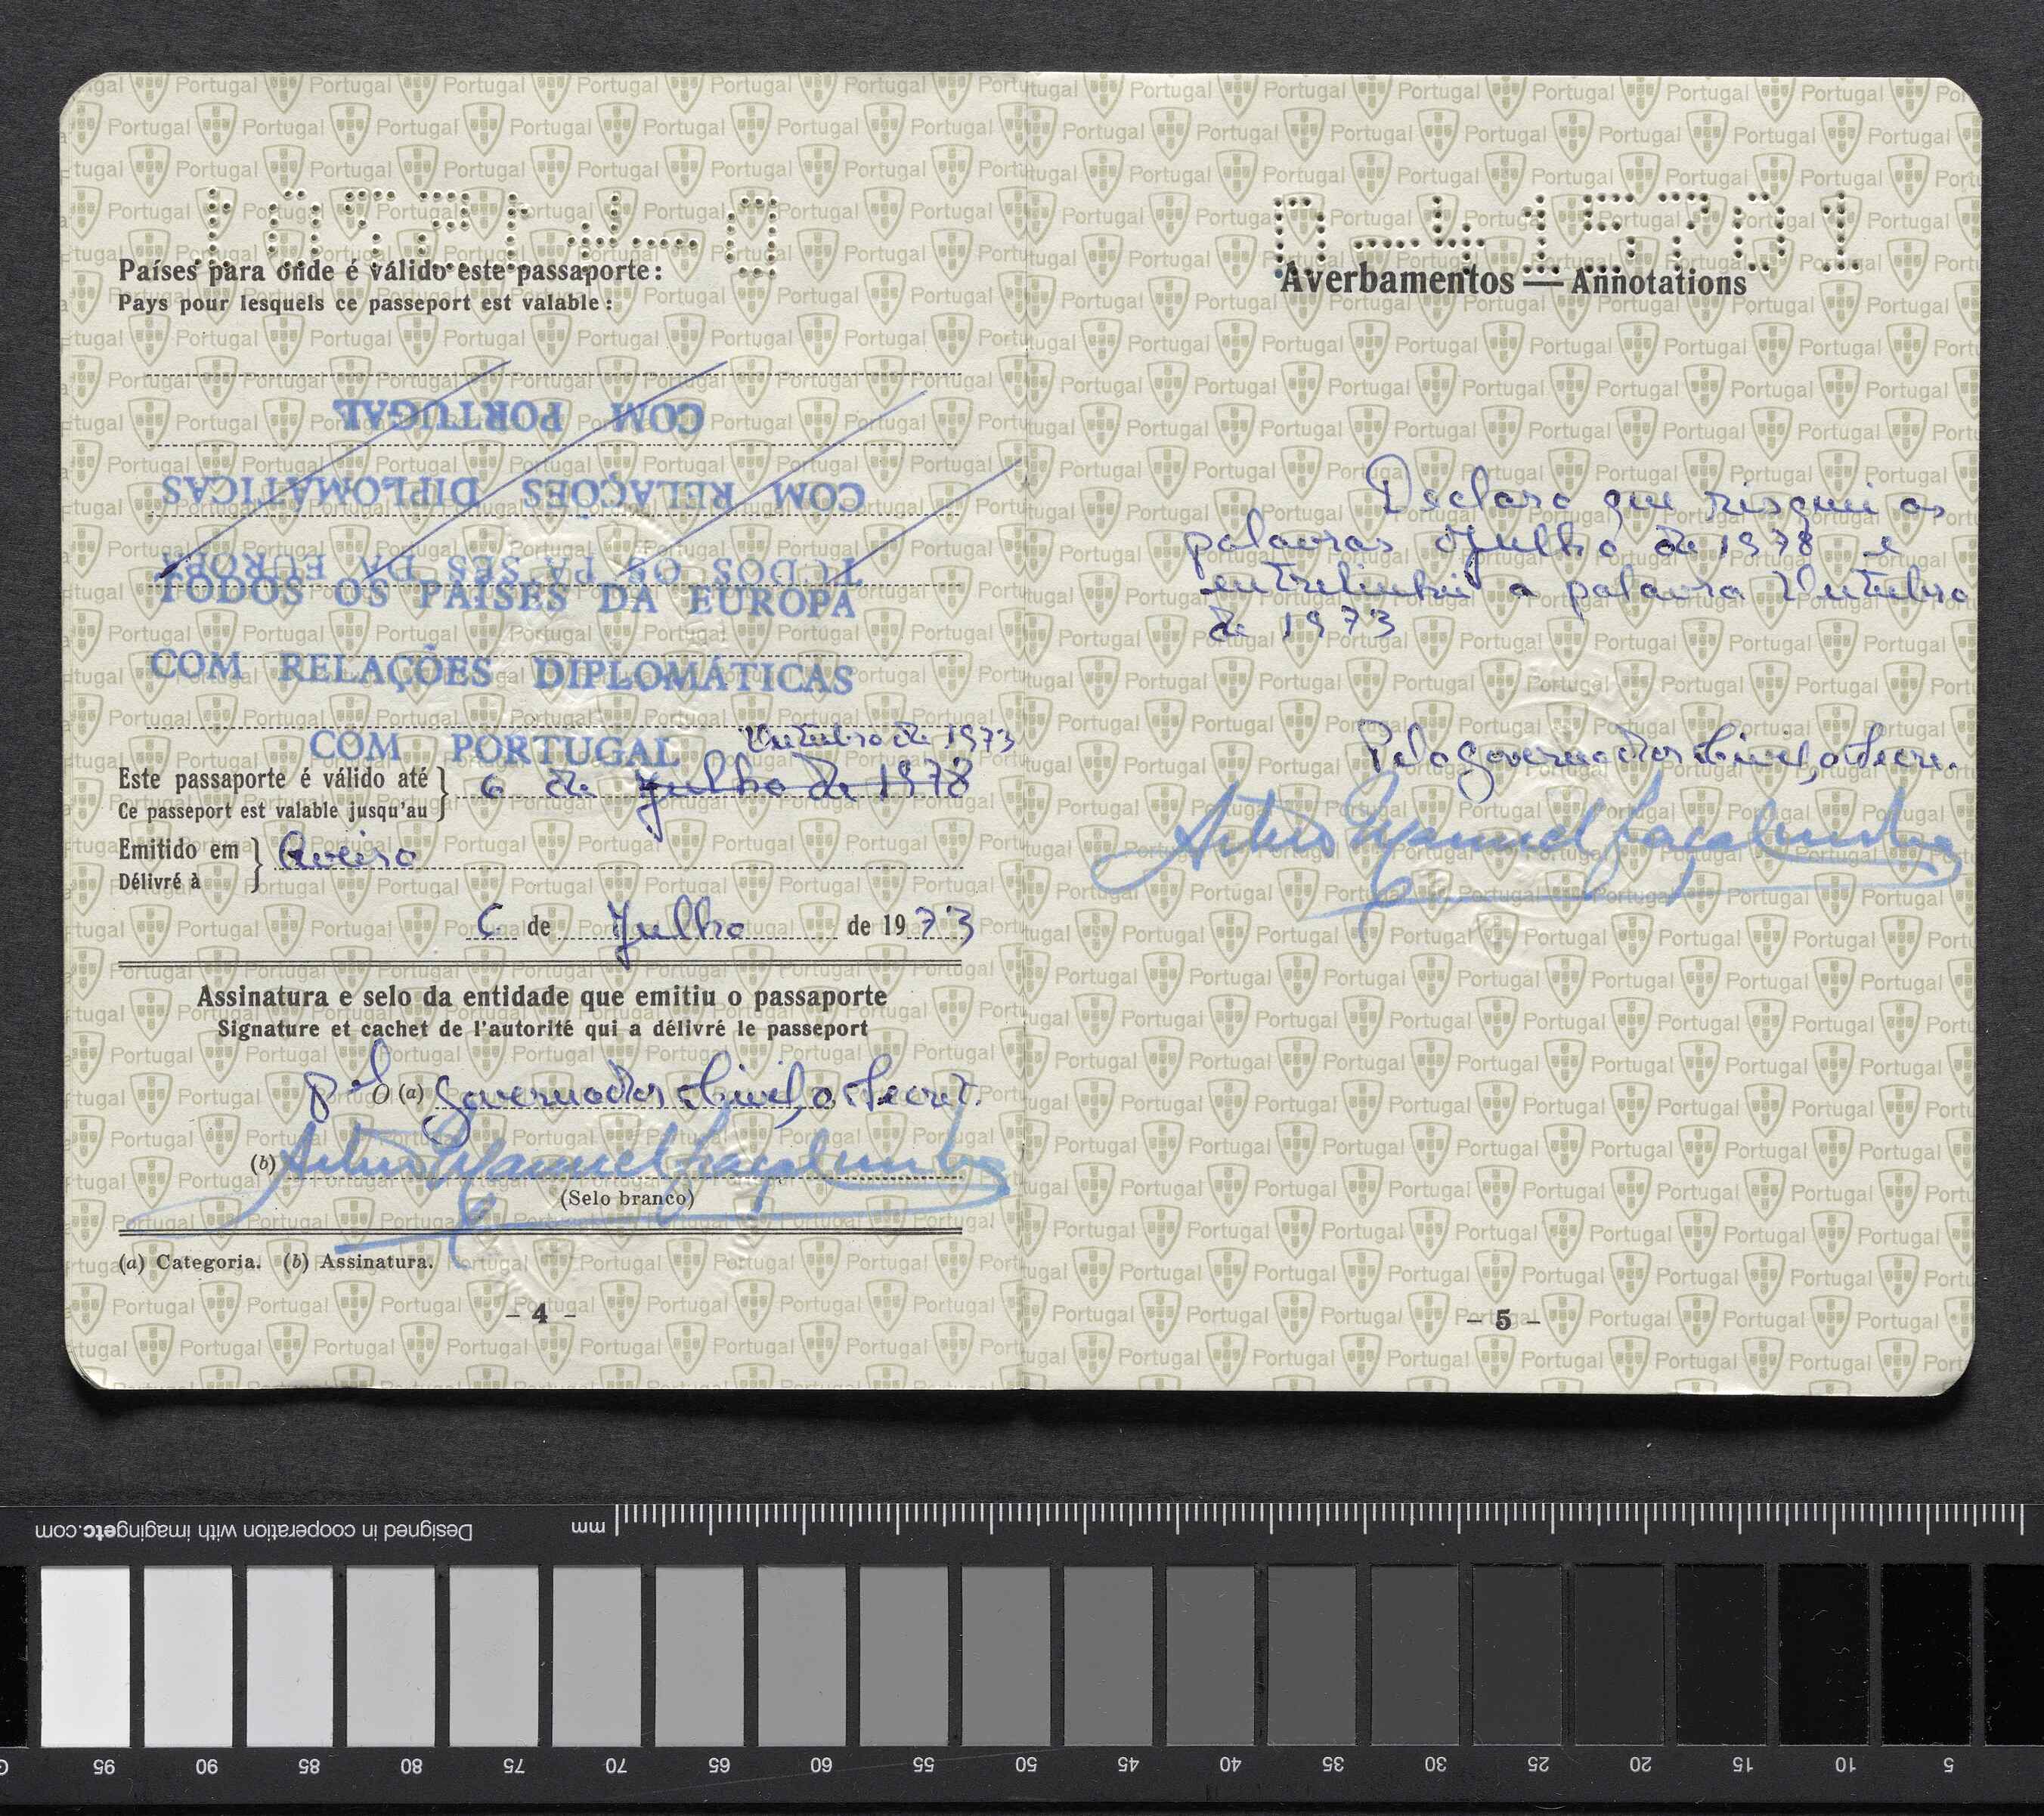 Países para onde é válido este passaporte:
Pays pour lesquels ce passeport est valable:
COM PORTUGAL
COM RELAÇÕES DIPLOMÁTICAS
TODOS OS PAISES DA EUROPA
TODOS OS PAISES DA EUROPA
COM RELAÇÕES DIPLOMÁTICAS
COM PORTUGAL
Outubro de 1973
Este passaporte é válido até
Ce passeport est valable jusqu'au
6 de Julho de 1978
Emitido em
Délivré à
Aveiro
6 de Julho de 1973
Assinatura e selo da entidade que emitiu o passaporte
Signature et cachet de l'autorité qui a délivré le passeport
pelO (a) Governador Civil, o Secret.
(b) Artur Manuel
(Selo branco)
(a) Categoria. (b) Assinatura.
– 4 –
0-415701
Averbamentos — Annotations
Declaro que risquei as
palavras Julho de 1978 e
entrelinhei a palavra Outubro
de 1973
Pelo Governador Civil, o Secre.
Artur Manuel
– 5 –
Designed in cooperation with imagingetc.com
mm
95 90 85 80 75 70 65 60 55 50 45 40 35 30 25 20 15 10 5